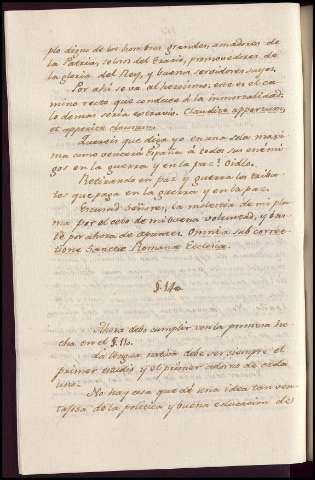 plo digno de los hombres grandes, amadores de
la Patria, zelosos del Erario, promovedores de
la gloria del Rey, y buenos servidores suyos.
Por ahi se va al heroismo: este es el ca-
mino recto que conduce à la inmortalidad:
lo demas seria extravio. Claudite apertum,
et aperite clausum.
Quereis que diga yo en una sola maxi-
ma como vencerá España à todos sus enemi-
gos en la guerra y en la paz? Oidlo.
Retirando en paz y guerra los tribu-
tos que paga en la guerra y en la paz.
Escusad Señores, la molestia de mi plu-
ma por el celo de mi buena voluntad, y bas-
te por ahora de apuntes. Omnia sub correc-
tione Sanctæ Romanæ Ecclesiæ.
§. 14o
Ahora debo cumplir con la promesa he-
cha en el §. 11o.
La lengua nativa debe ser siempre el
primer estudio, y el primer adorno de cada
uno.
No hay cosa que dé una idea tan ven-
tajosa de la politica y buena educacion de